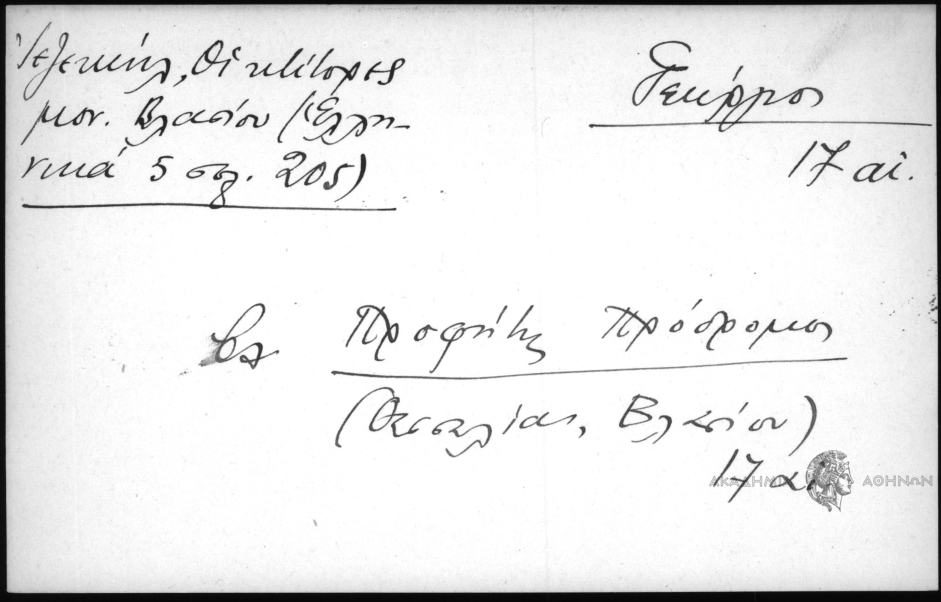 Ἰεζεκιήλ, Οἱ κτίτορες
μον. Βλασίου (Ἑλλη-
νικά 5 σελ. 205)
Γεώργιος
17 αἰ.
βλ Προφήτης Πρόδρομος
(Θεσσαλίας, Βλασίου)
17 αἰ
ΑΚΑΔΗΜΙΑ ΑΘΗΝΩΝ